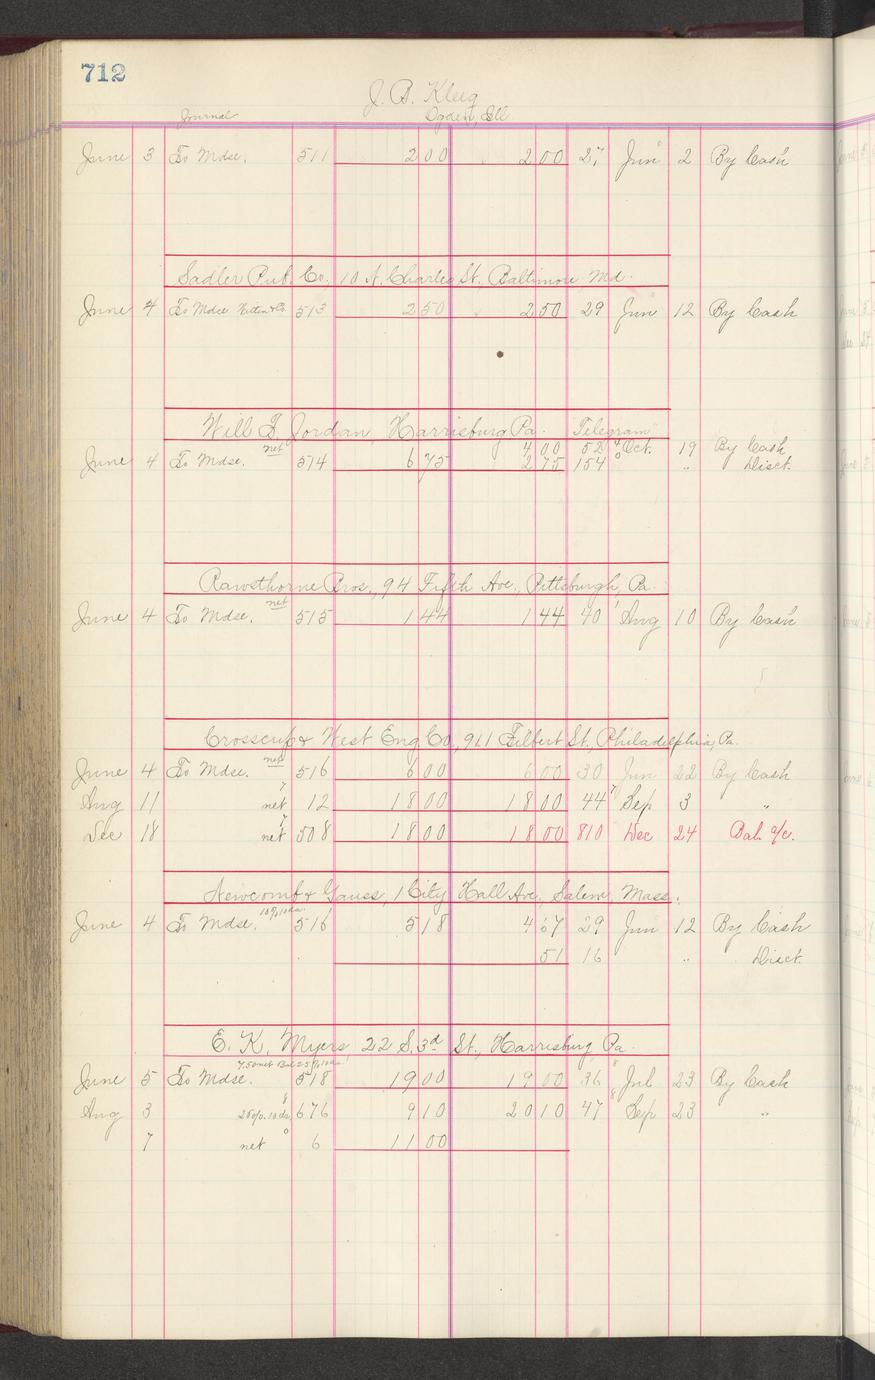 712
J. B. Kleeg
Journal Ogden, Ill
June 3 To Mdse. 511 2 00 2 00 27 Jun 2 By Cash
Sadler Pub. Co. 10 N. Charles St. Baltimore Md.
June 4 To Mdse 513 2 50 2 50 29 Jun 12 By Cash
Will F. Jordan Harrisburg Pa. Telegram
4 00 52 Oct. 19 By Cash
June 4 To Mdse. net 514 6 75 2 75 154 " Disct.
Rawsthorne Bros., 94 Fifth Ave., Pittsburgh, Pa.
June 4 To Mdse. net 515 1 44 1 44 40 Aug 10 By Cash
Crosscup & West Eng. Co., 911 Filbert St., Philadelphia, Pa.
June 4 To Mdse. net 516 6 00 6 00 30 Jun 22 By Cash
Aug 11 net 7 12 18 00 18 00 44 7 Sep 3 "
Dec 18 net 7 508 18 00 18 00 810 Dec 24 Bal. a/c.
Newcomb & Gauss, 1 City Hall Ave, Salem, Mass.
June 4 To Mdse. 10% 10 da. 516 5 18 4 67 29 Jun 12 By Cash
51 16 " Disct.
E. K. Myers 22 S. 3d St., Harrisburg Pa.
7.50 net Bal 25% 10 da.
June 5 To Mdse. 518 19 00 19 00 36 8 Jul 23 By Cash
Aug 3 25% 10 da 8 676 9 10 20 10 47 8 Sep 23 "
7 net 0 6 11 00